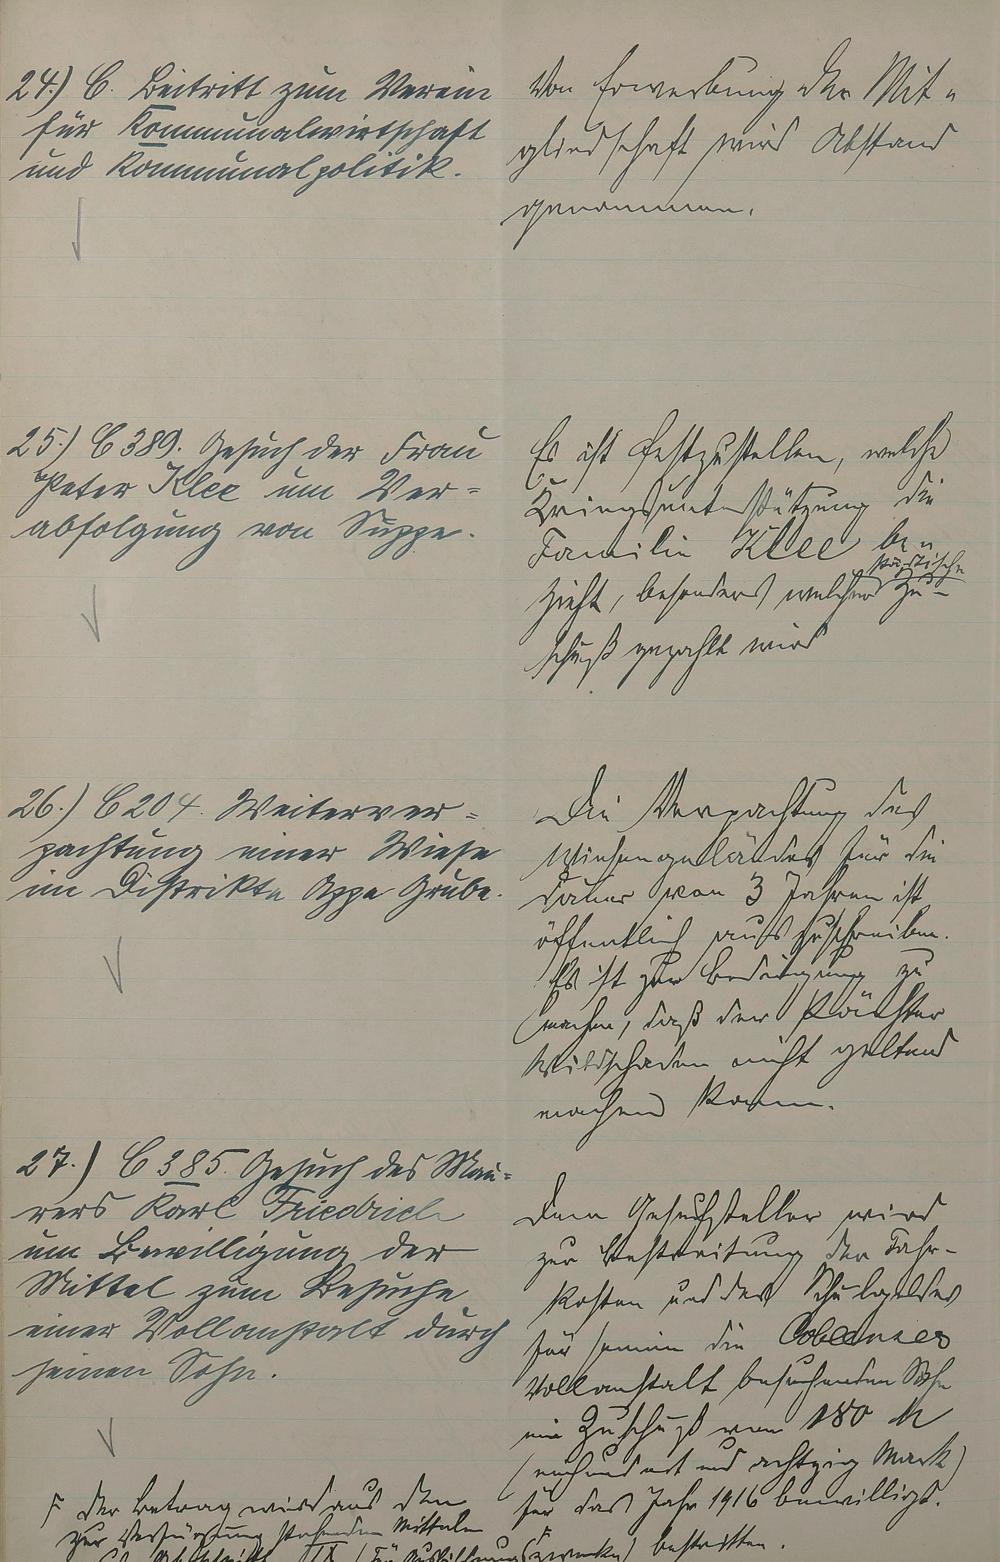 24.) C. Beitritt zum Verein
für Kommunalwirtschaft
und Kommunalpolitik.
Von Erwerbung der Mit-
gliedschaft wird Abstand
genommen.
25.) C 389. Gesuch der Frau
Peter Klee um Ver=
abfolgung von Suppe.
Es ist festzustellen, welche
Kriegsunterstützung die
Familie Klee be-
zieht, besonders welcher städtische Zu-
schuß gezahlt wird
26.) C 204. Weiterver=
pachtung einer Wiese
im Distrikte Appa Grube.
Die Verpachtung des
Wiesengeländes für die
Dauer von 3 Jahren ist
öffentlich auszuschreiben.
Es ist zur Bedingung zu
machen, daß der Pächter
Wildschaden nicht geltend
machen kann.
27.) C 385. Gesuch des Mau=
rers Karl Friedrich
um Bewilligung der
Mittel zum Besuche
einer Vollanstalt durch
seinen Sohn.
Dem Gesuchsteller wird
zur Bestreitung der Fahr-
kosten und des Schulgeldes
für seinen die Coblenzer
Vollanstalt besuchenden Sohn
ein Zuschuß von 180 M
(einhundert und achtzig Mark)
für das Jahr 1916 bewilligt.
F Der Betrag wird aus den
zur Verfügung stehenden Mitteln
(für Ausbildungszwecke) bestritten.